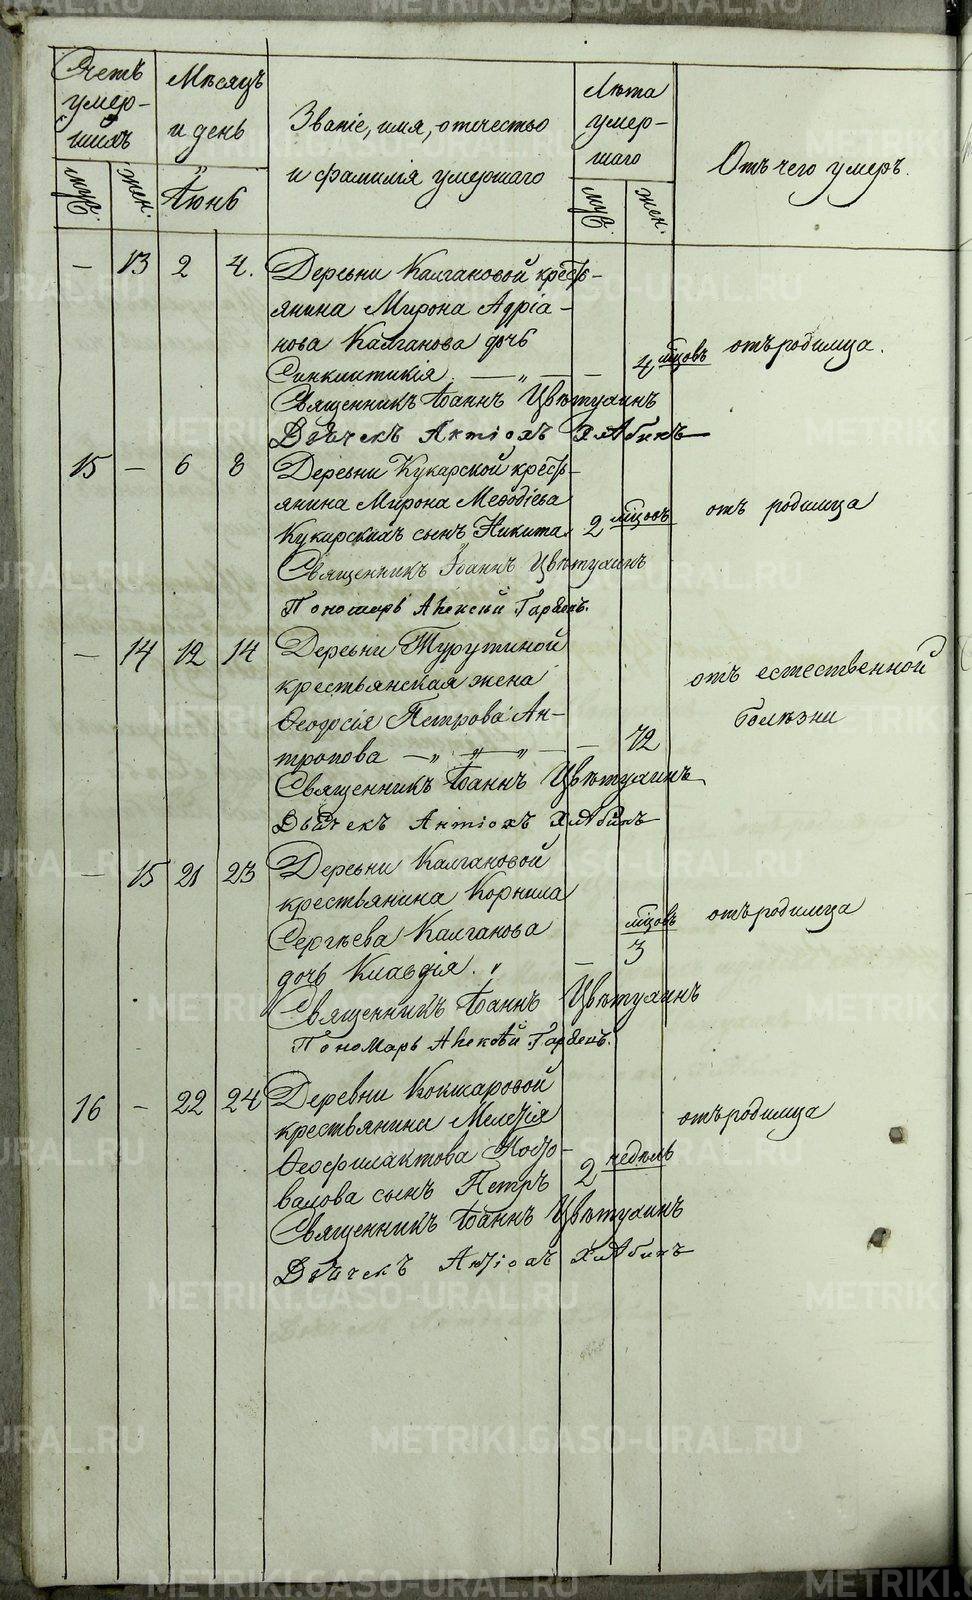 METRIKI.GASO-URAL.RU
Счетъ умер-шихъ
муж.
жен.
Мѣсяцъ и день
Іюнь
Званіе, имя, отчество
и фамилія умершаго
Лѣта умер-шаго
муж.
жен.
Отъ чего умеръ.
— 13 2 4. Деревни Калгановой кресть-
янина Мирона Адріа-
нова Калганова дочь
Синклитикія — „ — — 4 мѣсцовъ отъ родимца.
Священникъ Іоаннъ Цвѣтухинъ
Дьячекъ Антіохъ Хлябинъ
15 — 6 8 Деревни Кукарской кресть-
янина Мирона Меѳодіева
Кукарскихъ сынъ Никита 2 мѣсцовъ отъ родимца
Священникъ Іоаннъ Цвѣтухинъ
Пономарь Алексѣй
— 14 12 14 Деревни Турутиной
крестьянская жена
Ѳеодосія Петрова Ан-
тропова — „ — „ — — 72 отъ естественной
болѣзни
Священникъ Іоаннъ Цвѣтухинъ
Дьячекъ Антіохъ Хлябинъ
— 15 21 23 Деревни Калгановой
крестьянина Корнила
Сергѣева Калганова
дочь Клавдія. „ — мѣсцовъ 3 отъ родимца
Священникъ Іоаннъ Цвѣтухинъ
Пономарь Алексѣй
16 — 22 24 Деревни Кокшаровой
крестьянина Мелетія
Ѳеофилактова Подко-
валова сынъ Петръ 2 недѣль отъ родимца
Священникъ Іоаннъ Цвѣтухинъ
Дьячекъ Антіохъ Хлябинъ